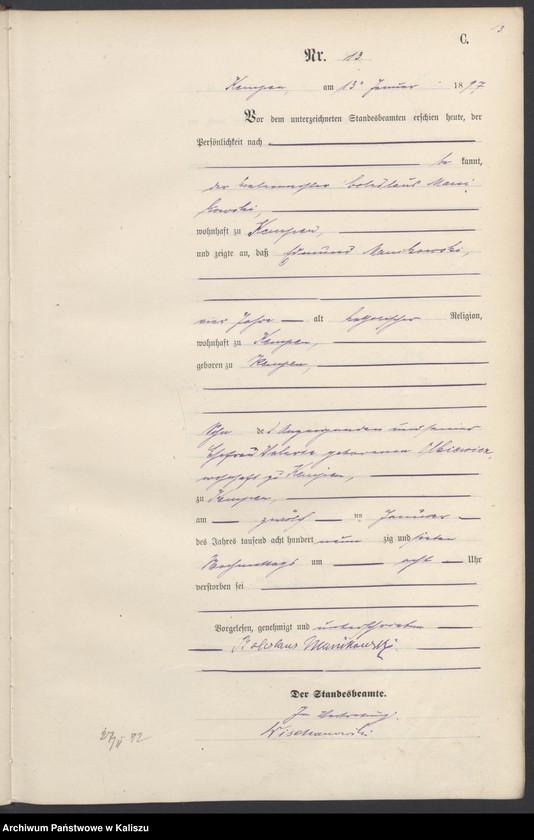 13
C.
Nr. 13
Kempen, am 13 Januar 1897
Vor dem unterzeichneten Standesbeamten erschien heute, der
Persönlichkeit nach
be kannt,
der Boleslaus Mani
kowski,
wohnhaft zu Kempen,
und zeigte an, daß Edmund Manikowski,
vier Jahre alt katholischer Religion,
wohnhaft zu Kempen,
geboren zu Kempen,
Sohn des Anzeigenden und seiner
Ehefrau Valeria geborenen
wohnhaft zu Kempen,
zu Kempen,
am zwölf ten Januar
des Jahres tausend acht hundert neun zig und sieben
Nachmittags um acht Uhr
verstorben sei
Vorgelesen, genehmigt und unterschrieben
Boleslaus Manikowski
Der Standesbeamte.
In Vertretung.
Archiwum Państwowe w Kaliszu